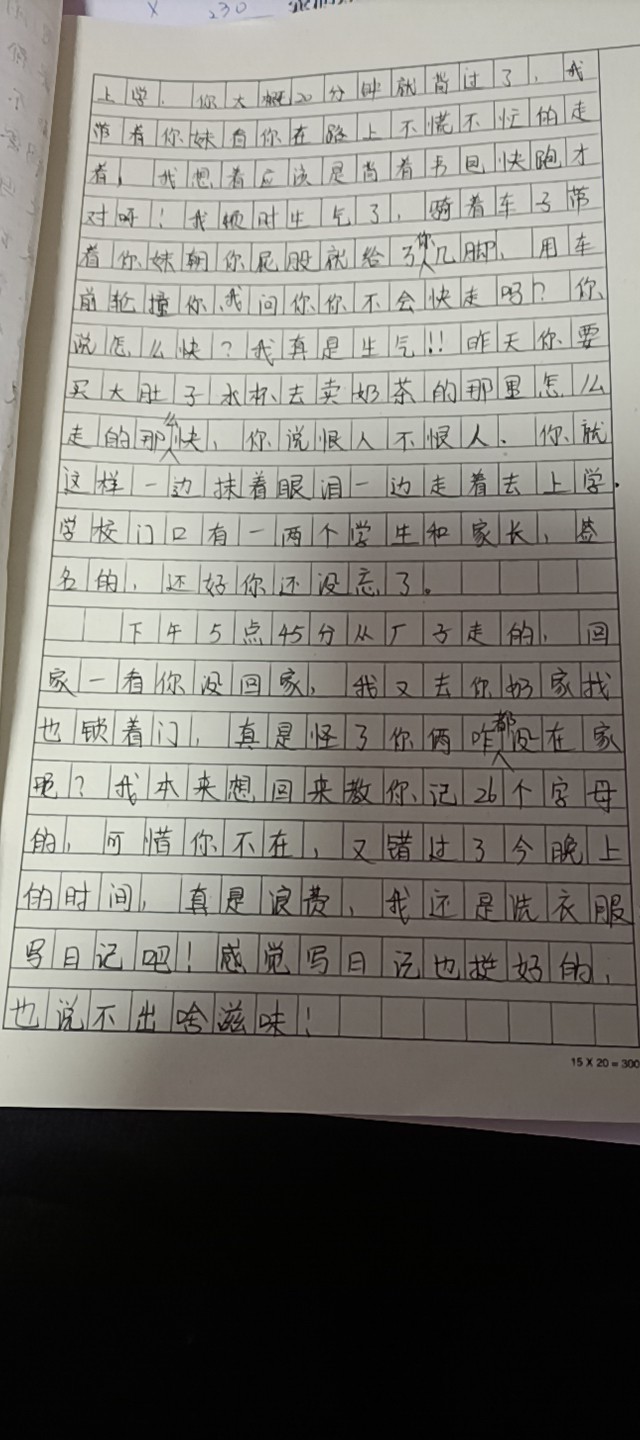 230
上学. 你大概20分钟就
过了, 我
带着你妹看你在路上不慌不忙的走
着, 我想着应该是背着书包快跑才
对呀! 我顿时生气了, 骑着车子带
着你妹朝你屁股就给了你几脚, 用车
前轮撞你, 我问你你不会快走吗? 你
说怎么快? 我真是生气!! 昨天你要
买大肚子水杯去卖奶茶的那里怎么
走的那么快, 你说恨人不恨人. 你就
这样一边抹着眼泪一边走着去上学.
学校门口有一两个学生和家长, 签
名的, 还好你还没忘了。
下午5点45分从厂子走的, 回
家一看你没回家, 我又去你奶家找
也锁着门, 真是怪了你俩咋都没在家
呢? 我本来想回来教你记26个字母
的, 可惜你不在, 又错过了今晚上
的时间, 真是浪费, 我还是洗衣服
写日记吧! 感觉写日记也挺好的,
也说不出啥滋味!
15 X 20 = 300